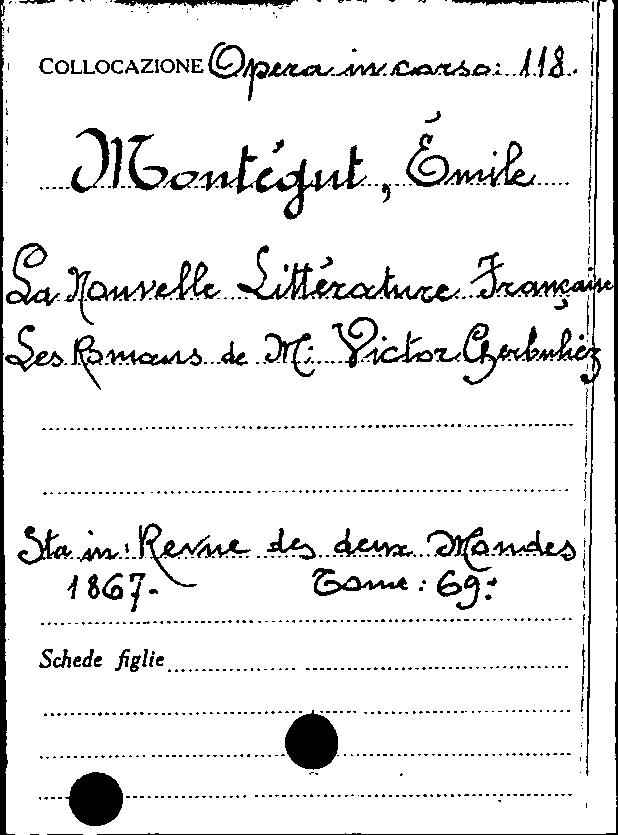 COLLOCAZIONE Opera in corso: 118.
Montégut, Émile
La Nouvelle Littérature Française
Les Romans de M: Victor Cherbuliez
Sta in: Revue des deux Mondes
1867. Tome: 69:
Schede figlie